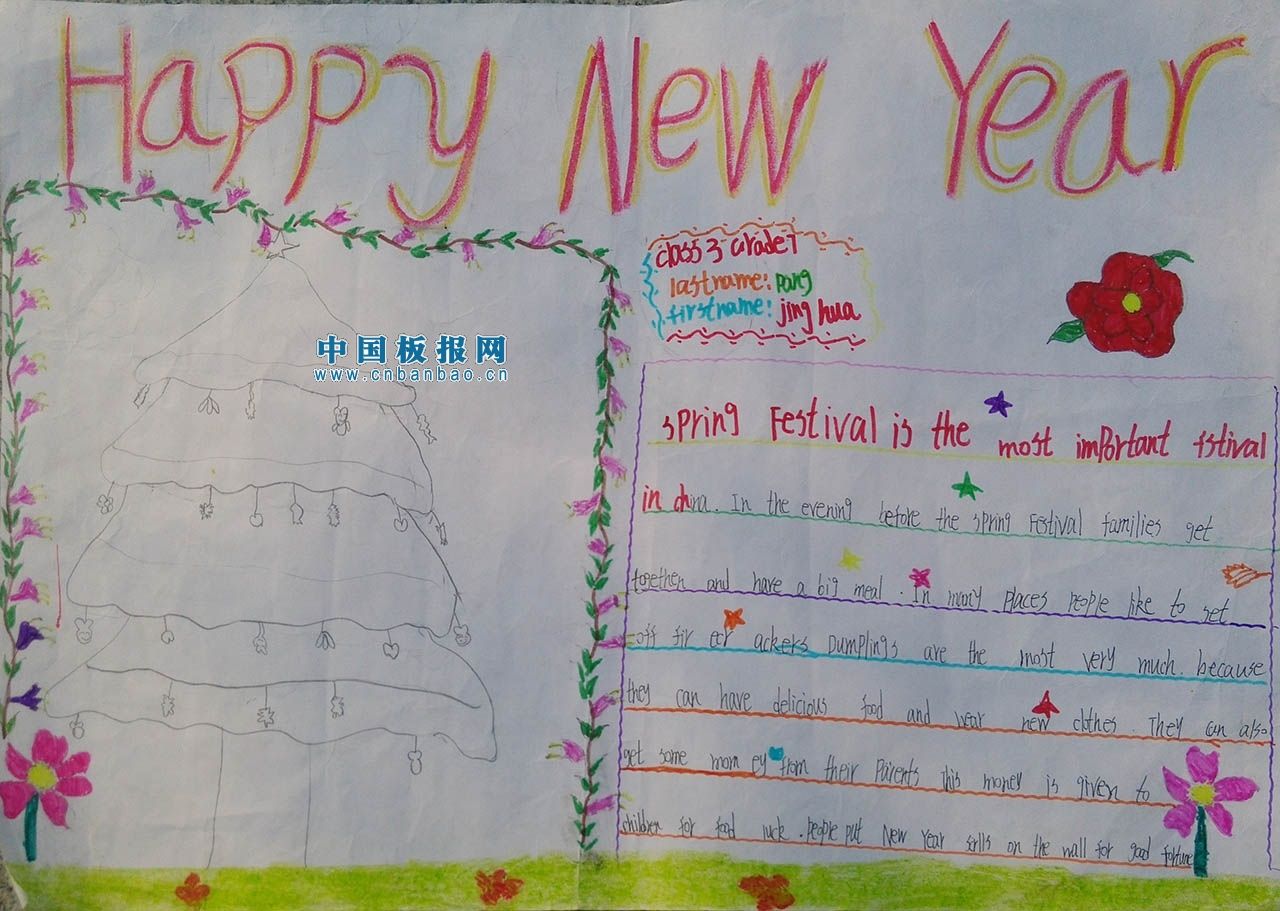 Happy New Year
class 3 Grade 7
lastname: Pang
firstname: jing hua
中国板报网
www.cnbanbao.cn
spring Festival is the most important fstival
in china. In the evening before the spring Festival families get
togethen and have a big meal . In many places people like to set
off fir ecr ackers Dumplings are the most very much because
they can have delicious food and wear new clothes They can also
get some morn ey from their Parents this money is given to
children for food luck . people put New Year on the wall for good fortune